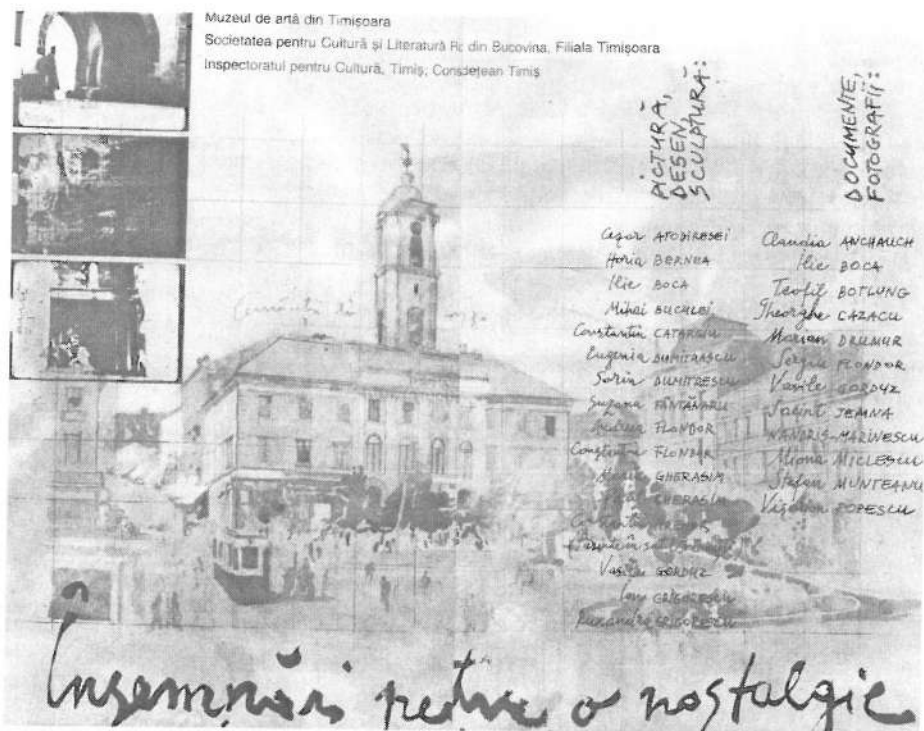 Muzeul de artă din Timișoara
Societatea pentru Cultură și Literatură Rc din Bucovina, Filiala Timișoara
Inspectoratul pentru Cultură, Timiș; Consdețean Timiș
PICTURĂ,
DESEN,
SCULATURĂ:
Cezar ATODIRESEI
Horia BERNEA
Ilie BOCA
Mihai BUCULEI
Constantin CATARGIU
Eugenia DUMITRAȘCU
Sorin DUMITRESCU
Suzana FÂNTÂNARU
Andreea FLONDOR
Constantin FLONDOR
GHERASIM
GHERASIM
Vasile GORDUZ
Ion GRIGORESCU
Ruxandra GRIGORESCU
DOCUMENTE,
FOTOGRAFII:
Claudia ANCHAUCH
Ilie BOCA
Teofil BOTLUNG
Gheorghe CAZACU
Marian DRUMUR
Sergiu FLONDOR
Vasile GORDUZ
JEMNA
NANDRIȘ-MARINESCU
Miona MICLESCU
Ștefan MUNTEANU
POPESCU
Însemnări petru o nostalgie